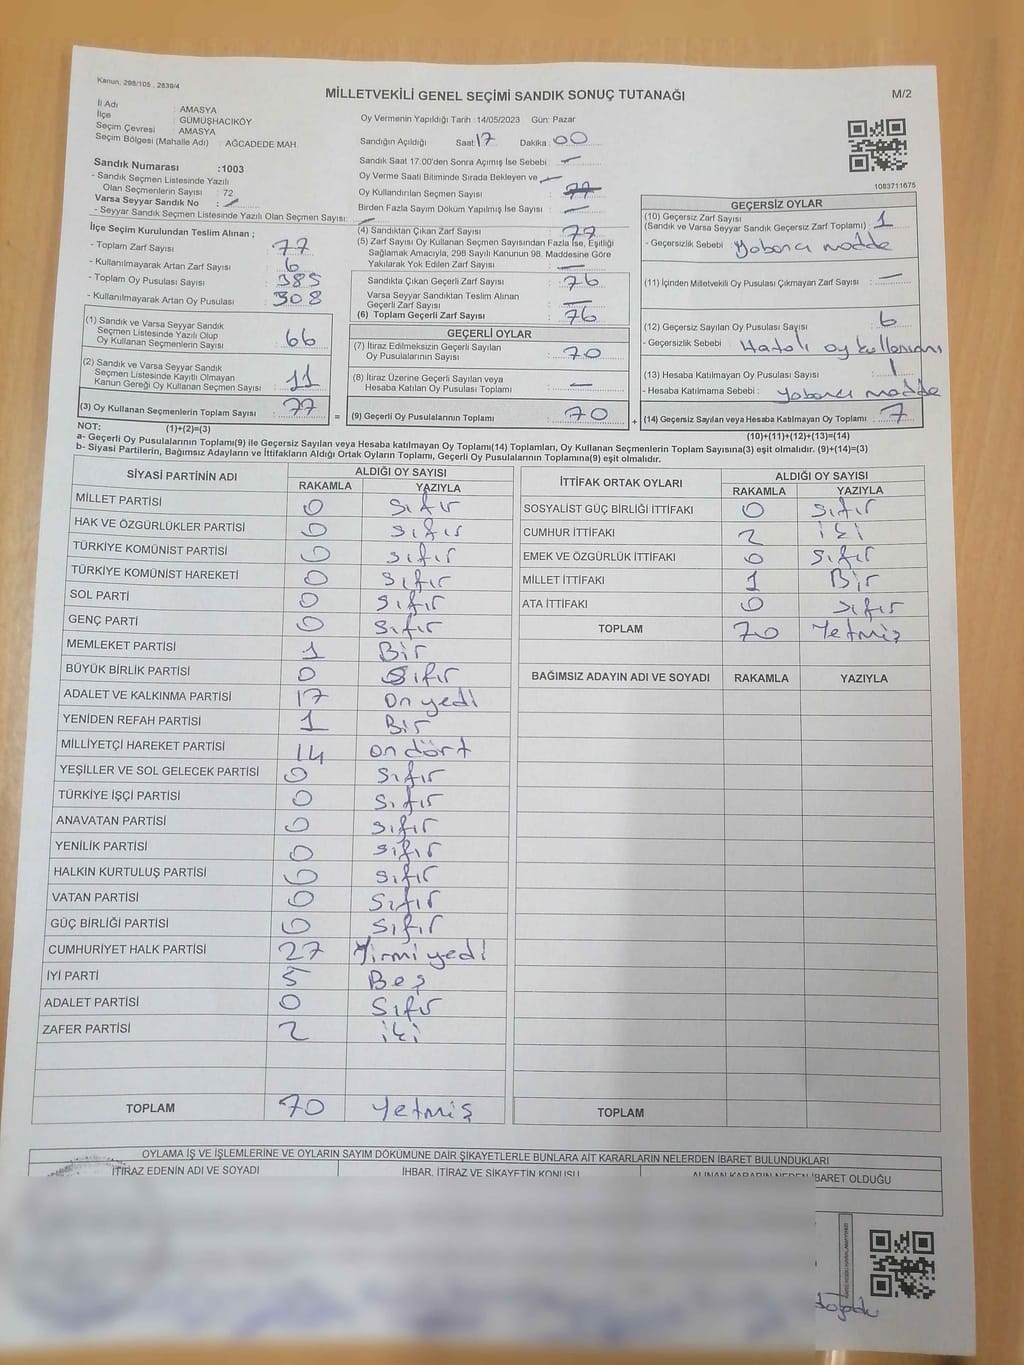 Kanun, 298/105 , 2839/4
MİLLETVEKİLİ GENEL SEÇİMİ SANDIK SONUÇ TUTANAĞI
M/2
İl Adı : AMASYA
İlçe : GÜMÜŞHACIKÖY
Seçim Çevresi : AMASYA
Seçim Bölgesi (Mahalle Adı) : AĞCADEDE MAH.
Sandık Numarası :1003
- Sandık Seçmen Listesinde Yazılı
Olan Seçmenlerin Sayısı : 72
Varsa Seyyar Sandık No :
- Seyyar Sandık Seçmen Listesinde Yazılı Olan Seçmen Sayısı:
İlçe Seçim Kurulundan Teslim Alınan ;
- Toplam Zarf Sayısı : 77
- Kullanılmayarak Artan Zarf Sayısı : 6
- Toplam Oy Pusulası Sayısı : 385
- Kullanılmayarak Artan Oy Pusulası : 308
(1) Sandık ve Varsa Seyyar Sandık
Seçmen Listesinde Yazılı Olup
Oy Kullanan Seçmenlerin Sayısı : 66
(2) Sandık ve Varsa Seyyar Sandık
Seçmen Listesinde Kayıtlı Olmayan
Kanun Gereği Oy Kullanan Seçmen Sayısı : 11
(3) Oy Kullanan Seçmenlerin Toplam Sayısı : 77
(1)+(2)=(3)
Oy Vermenin Yapıldığı Tarih : 14/05/2023 Gün: Pazar
Sandığın Açıldığı Saat: 17 Dakika: 00
Sandık Saat 17:00'den Sonra Açımış İse Sebebi : —
Oy Verme Saati Bitiminde Sırada Bekleyen ve —
Oy Kullandırılan Seçmen Sayısı : 77
Birden Fazla Sayım Döküm Yapılmış İse Sayısı : —
(4) Sandıktan Çıkan Zarf Sayısı : 77
(5) Zarf Sayısı Oy Kullanan Seçmen Sayısından Fazla İse, Eşitliği
Sağlamak Amacıyla, 298 Sayılı Kanunun 98. Maddesine Göre
Yakılarak Yok Edilen Zarf Sayısı : —
Sandıkta Çıkan Geçerli Zarf Sayısı : 76
Varsa Seyyar Sandıktan Teslim Alınan
Geçerli Zarf Sayısı : —
(6) Toplam Geçerli Zarf Sayısı : 76
GEÇERLİ OYLAR
(7) İtiraz Edilmeksizin Geçerli Sayılan
Oy Pusulalarının Sayısı : 70
(8) İtiraz Üzerine Geçerli Sayılan veya
Hesaba Katılan Oy Pusulası Toplamı : —
= (9) Geçerli Oy Pusulalarının Toplamı : 70
1083711675
GEÇERSİZ OYLAR
(10) Geçersiz Zarf Sayısı : 1
(Sandık ve Varsa Seyyar Sandık Geçersiz Zarf Toplamı)
- Geçersizlik Sebebi : Yabancı madde
(11) İçinden Milletvekili Oy Pusulası Çıkmayan Zarf Sayısı : —
(12) Geçersiz Sayılan Oy Pusulası Sayısı : 6
- Geçersizlik Sebebi : Hatalı oy kullanımı
(13) Hesaba Katılmayan Oy Pusulası Sayısı : 1
- Hesaba Katılmama Sebebi : Yabancı madde
+ (14) Geçersiz Sayılan veya Hesaba Katılmayan Oy Toplamı : 7
(10)+(11)+(12)+(13)=(14)
NOT:
a- Geçerli Oy Pusulasının Toplamı(9) ile Geçersiz Sayılan veya Hesaba katılmayan Oy Toplamı(14) Toplamları, Oy Kullanan Seçmenlerin Toplam Sayısına(3) eşit olmalıdır. (9)+(14)=(3)
b- Siyasi Partilerin, Bağımsız Adayların ve İttifakların Aldığı Ortak Oyların Toplamı, Geçerli Oy Pusulalarının Toplamına(9) eşit olmalıdır.
SİYASİ PARTİNİN ADI ALDIĞI OY SAYISI
RAKAMLA YAZIYLA
MİLLET PARTİSİ 0 Sıfır
HAK VE ÖZGÜRLÜKLER PARTİSİ 0 sıfır
TÜRKİYE KOMÜNİST PARTİSİ 0 sıfır
TÜRKİYE KOMÜNİST HAREKETİ 0 sıfır
SOL PARTİ 0 sıfır
GENÇ PARTİ 0 sıfır
MEMLEKET PARTİSİ 1 Bir
BÜYÜK BİRLİK PARTİSİ 0 Sıfır
ADALET VE KALKINMA PARTİSİ 17 On yedi
YENİDEN REFAH PARTİSİ 1 Bir
MİLLİYETÇİ HAREKET PARTİSİ 14 on dört
YEŞİLLER VE SOL GELECEK PARTİSİ 0 Sıfır
TÜRKİYE İŞÇİ PARTİSİ 0 Sıfır
ANAVATAN PARTİSİ 0 sıfır
YENİLİK PARTİSİ 0 sıfır
HALKIN KURTULUŞ PARTİSİ 0 sıfır
VATAN PARTİSİ 0 Sıfır
GÜÇ BİRLİĞİ PARTİSİ 0 sıfır
CUMHURİYET HALK PARTİSİ 27 Yirmi yedi
İYİ PARTİ 5 Beş
ADALET PARTİSİ 0 Sıfır
ZAFER PARTİSİ 2 iki
TOPLAM 70 Yetmiş
İTTİFAK ORTAK OYLARI ALDIĞI OY SAYISI
RAKAMLA YAZIYLA
SOSYALİST GÜÇ BİRLİĞİ İTTİFAKI 0 sıfır
CUMHUR İTTİFAKI 2 iki
EMEK VE ÖZGÜRLÜK İTTİFAKI 0 Sıfır
MİLLET İTTİFAKI 1 Bir
ATA İTTİFAKI 0 sıfır
TOPLAM 70 Yetmiş
BAĞIMSIZ ADAYIN ADI VE SOYADI RAKAMLA YAZIYLA
TOPLAM
OYLAMA İŞ VE İŞLEMLERİNE VE OYLARIN SAYIM DÖKÜMÜNE DAİR ŞİKAYETLERLE BUNLARA AİT KARARLARIN NELERDEN İBARET BULUNDUKLARI
İTİRAZ EDENİN ADI VE SOYADI İHBAR, İTİRAZ VE ŞİKAYETİN KONUSU ALINAN KARARIN NEDEN İBARET OLDUĞU